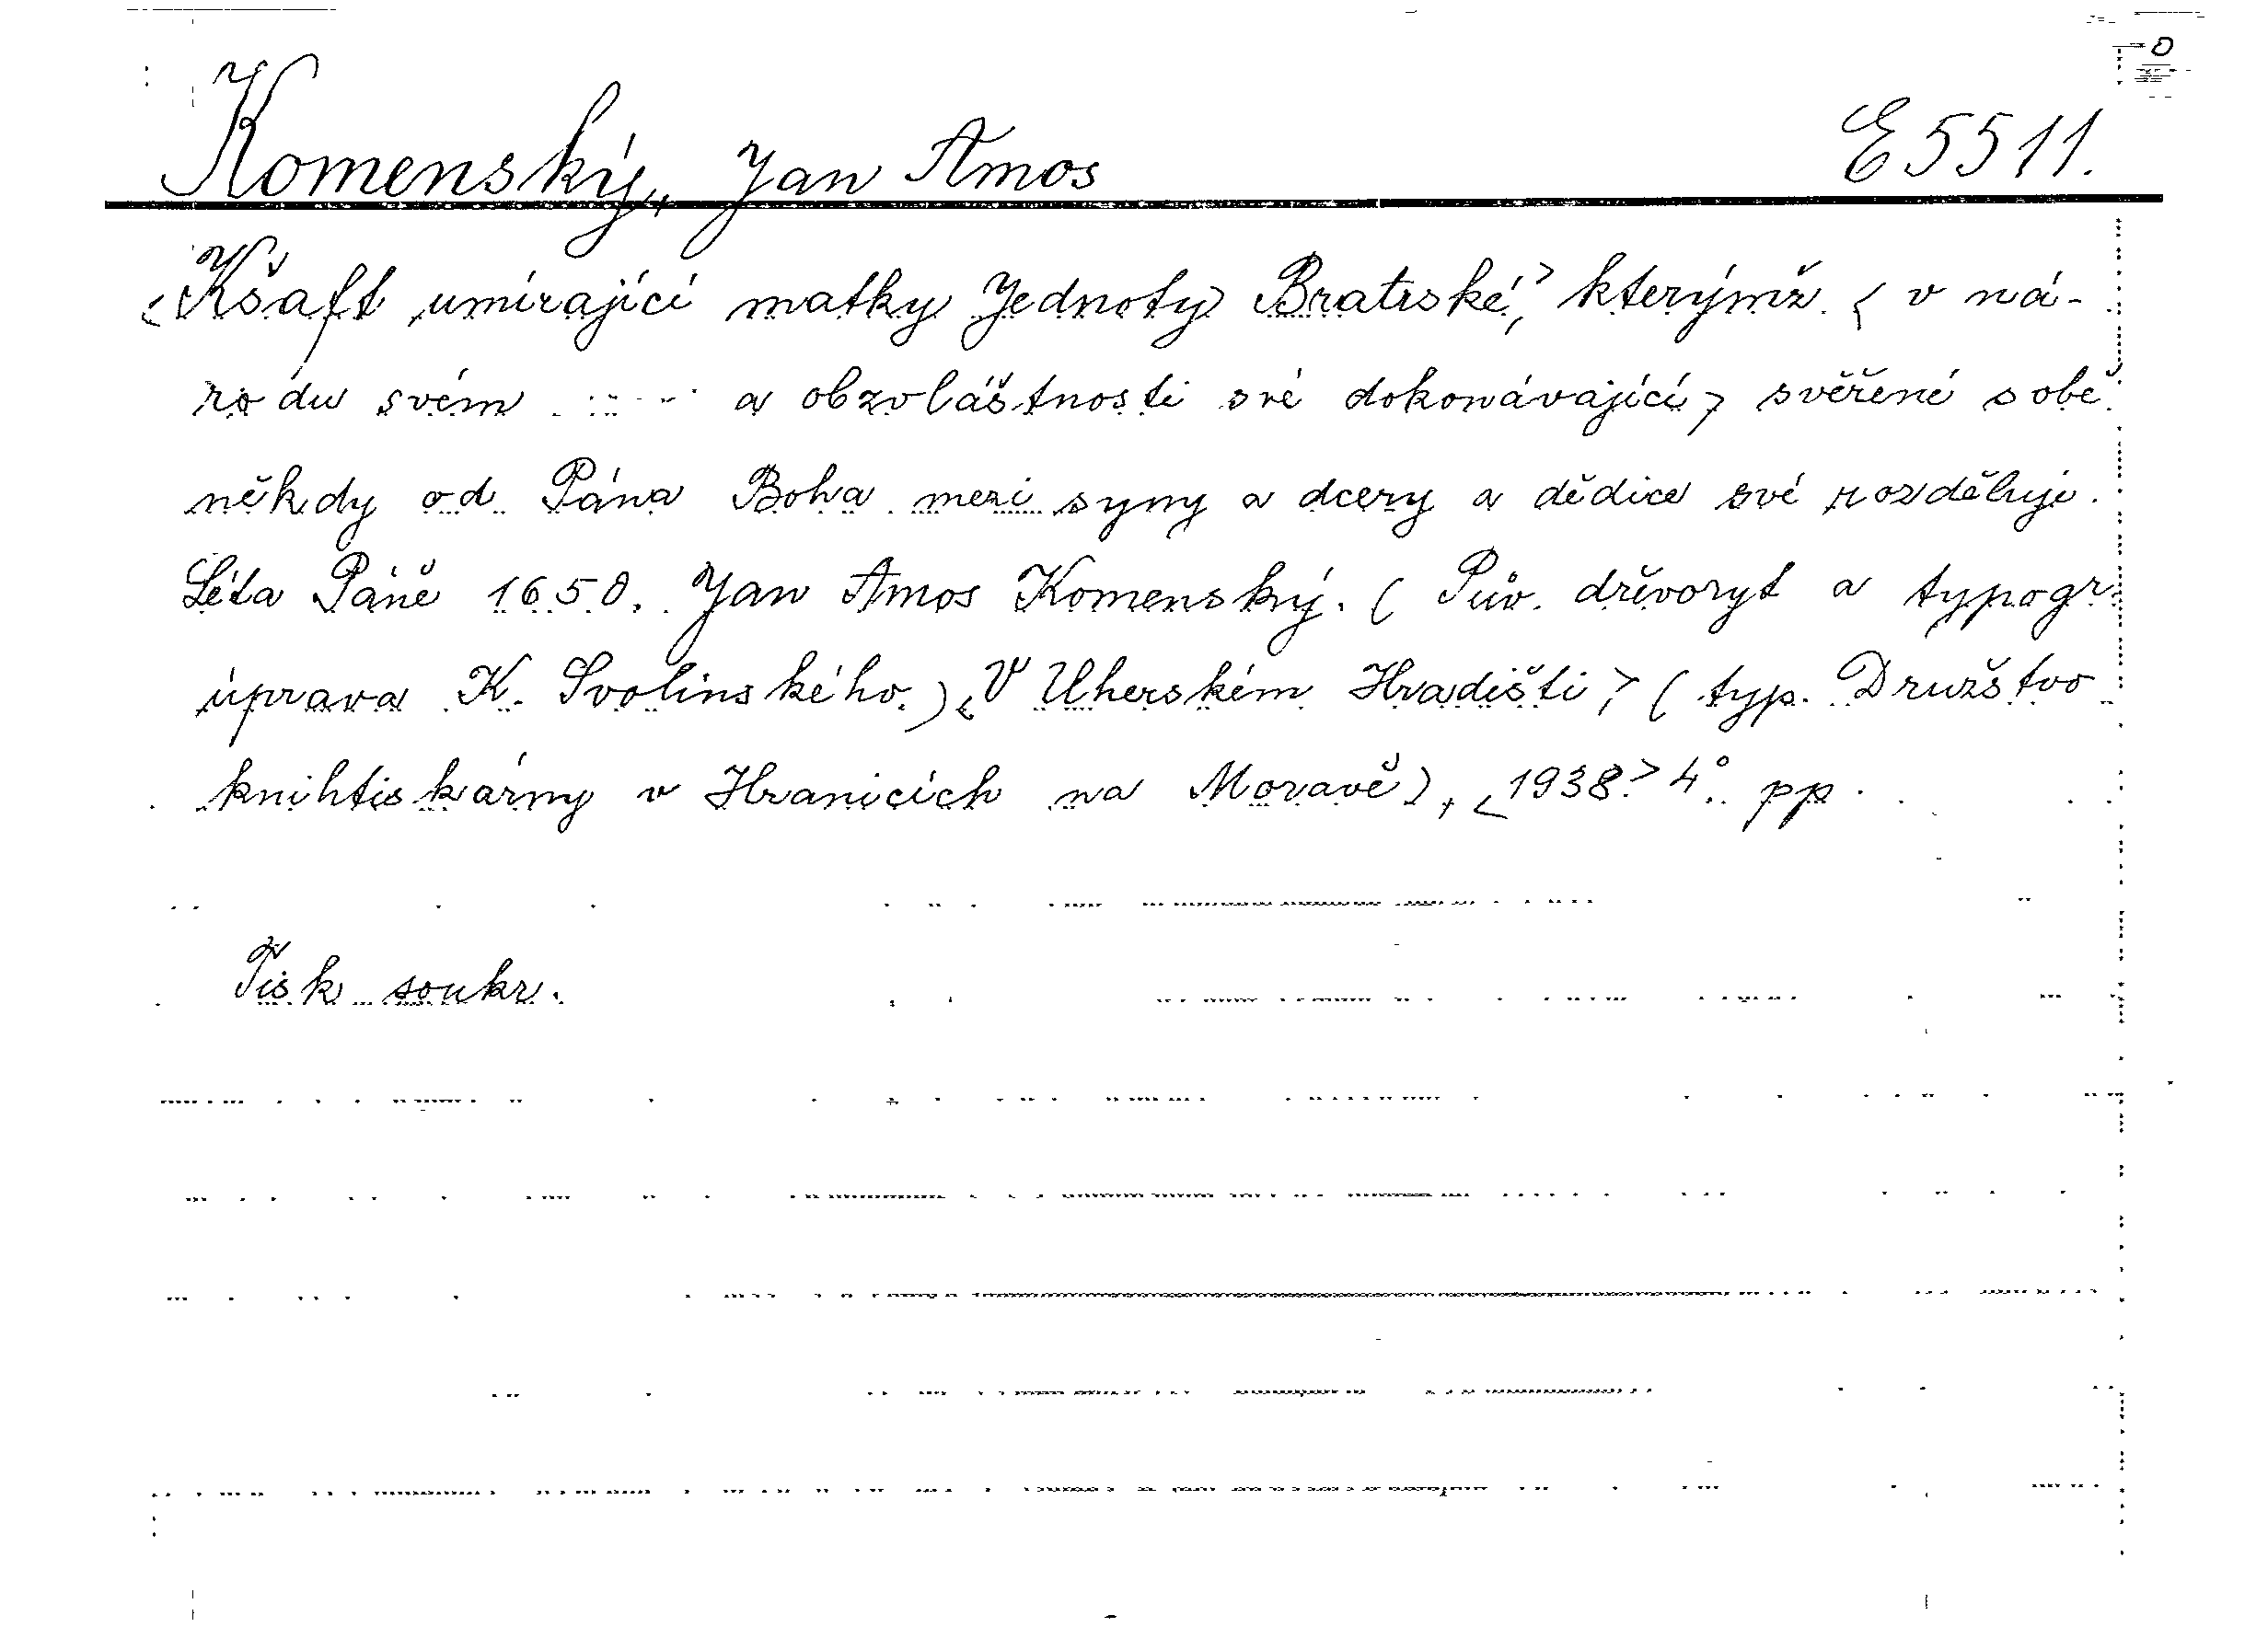 Komenský, Jan Amos E 5511.
<Kšaft umírající matky Jednoty Bratrské,> kterýmž < v ná-
rodu svém a obzvláštnosti své dokonávající> svěřené sobě
někdy od Pána Boha mezi syny a dcery a dědice své rozděluje.
Léta Páně 1650. Jan Amos Komenský. (Pův. dřevoryt a typogr.
úprava K. Svolinského.) <V Uherském Hradišti> (typ. Družstvo
knihtiskárny v Hranicích na Moravě), <1938> 4°. pp.
Tisk soukr.